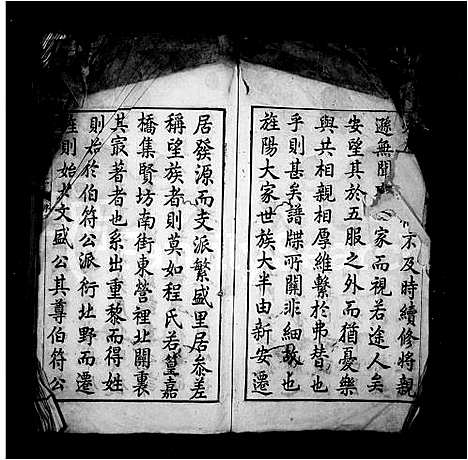 不及時續修將親
遜無聞家而視若途人矣
安望其於五服之外而猶憂樂
與共相親相厚維繫於弗替也
乎則甚矣譜牒所關非細故也
旌陽大家世族大半由新安遷
居發源而支派繁盛里居參差
稱望族者則莫如程氏若篁嘉
橋集賢坊南街東營裡北關裏
其最著者也系出重黎而得姓
則始於伯符公派衍址野而遷
旌則始於文盛公其尊伯符公